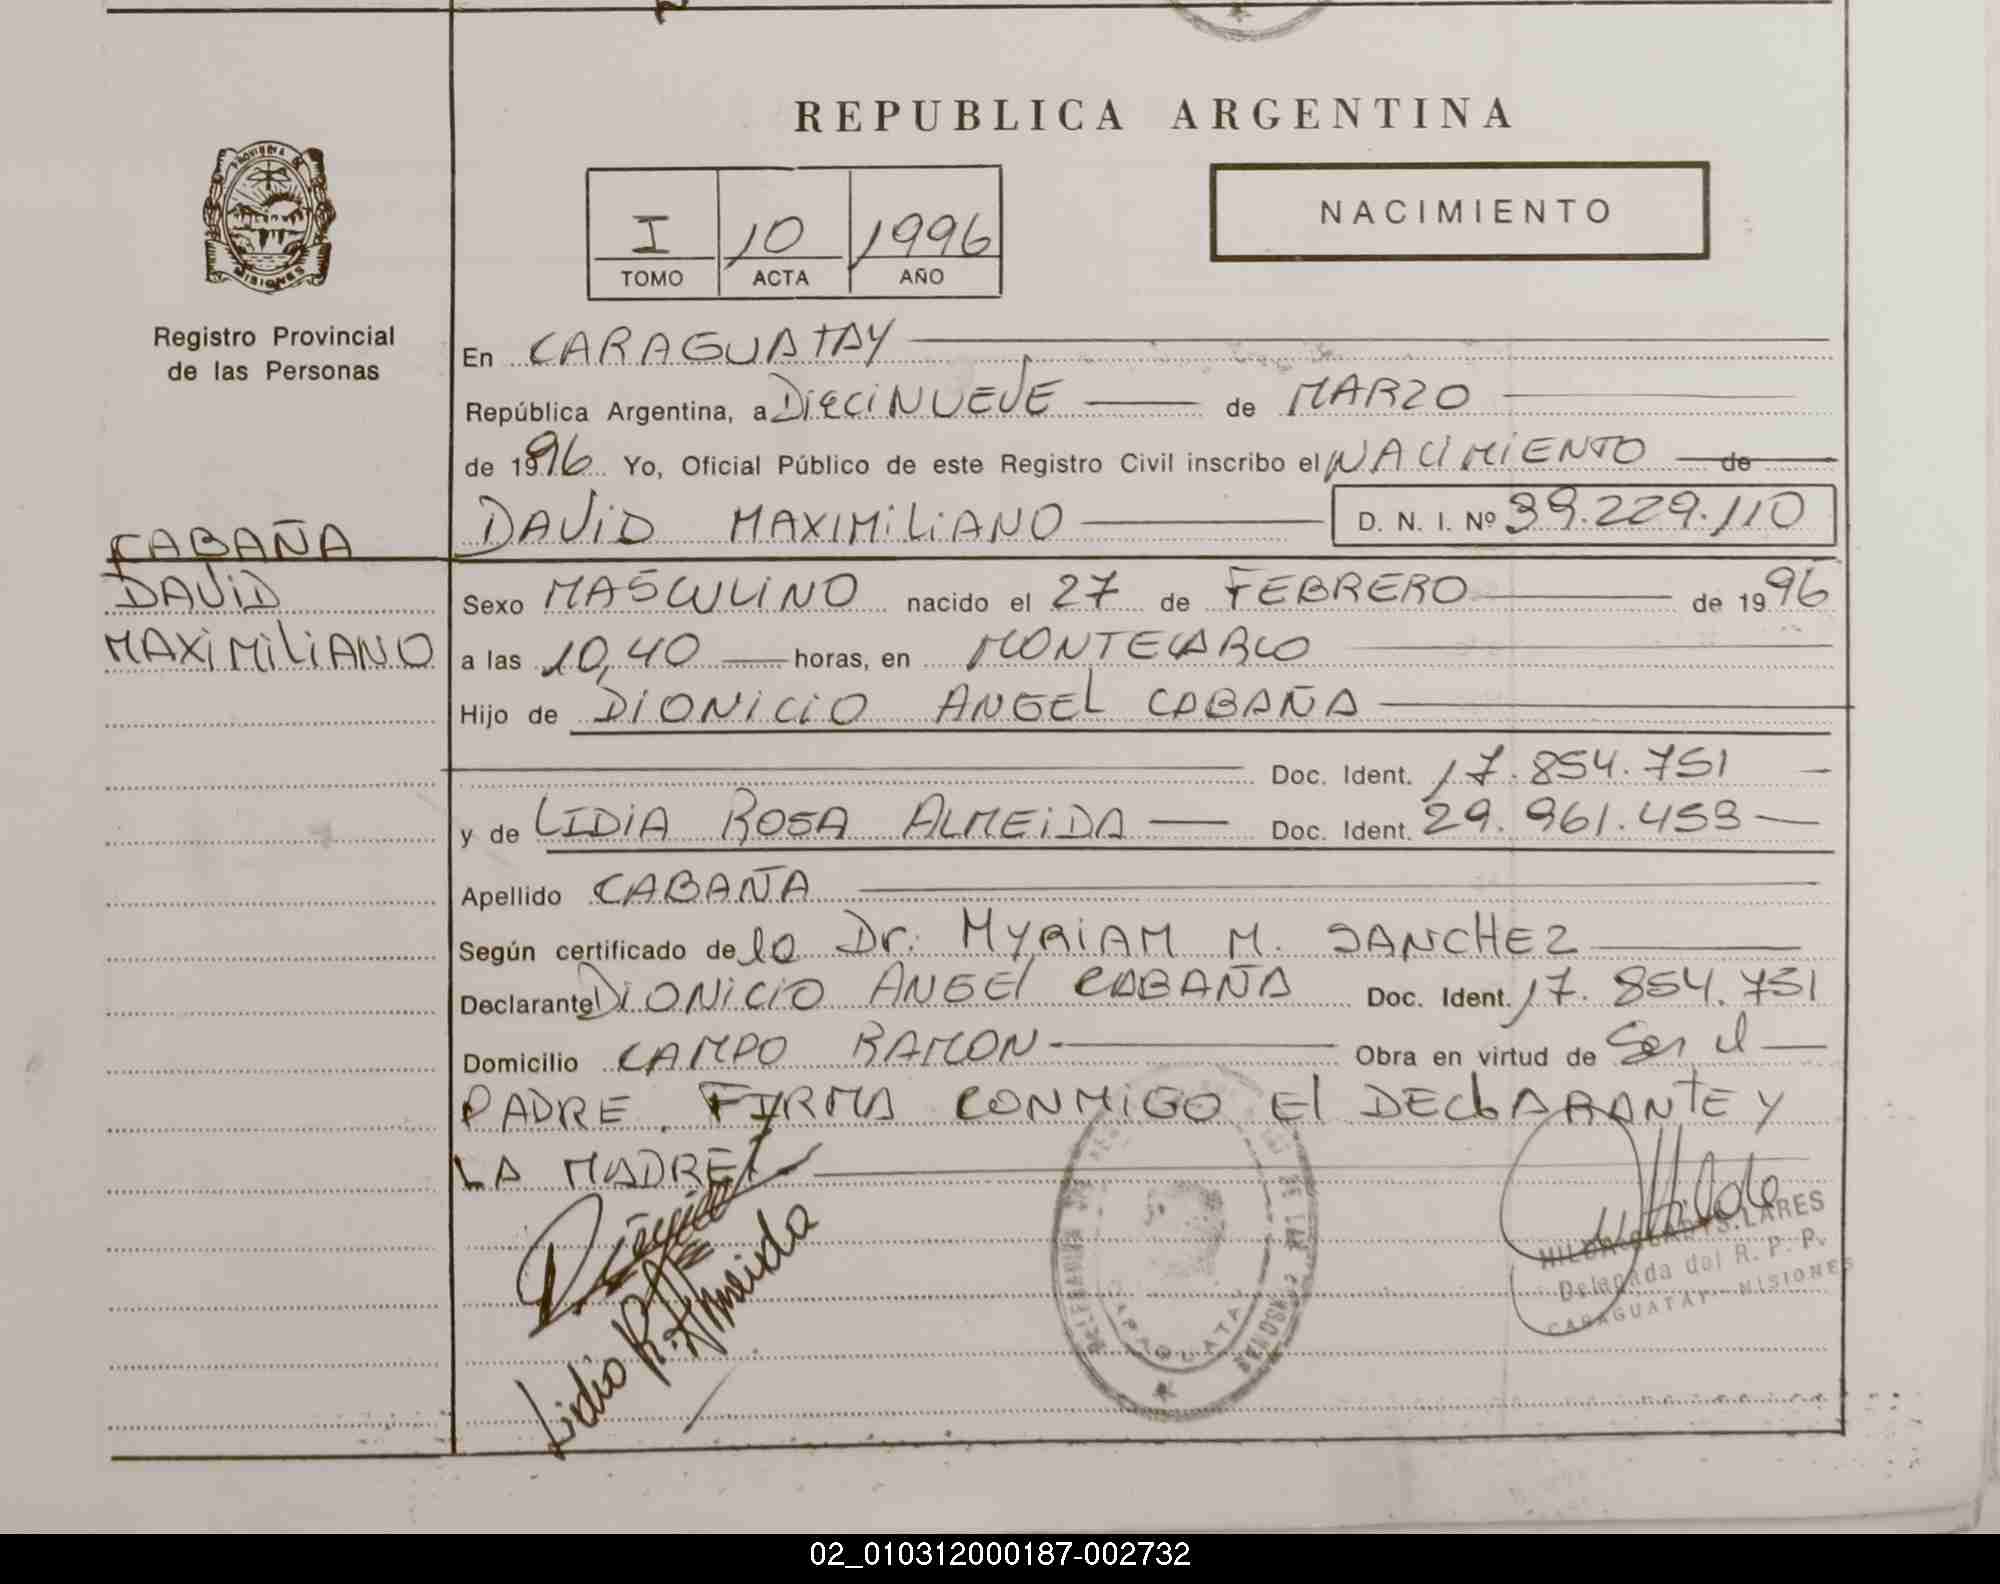 REPUBLICA ARGENTINA
PROVINCIA DE
MISIONES
Registro Provincial
de las Personas
I 10 1996
TOMO ACTA AÑO
NACIMIENTO
En CARAGUATAY
República Argentina, a DiECiNUEVE de MARZO
de 1996 Yo, Oficial Público de este Registro Civil inscribo el NACIMIENTO de
DAViD MAXIMiLiANO D. N. I. Nº 39.229.110
CABAÑA
DAViD
MAXiMiLiANO
Sexo MASCULINO nacido el 27 de FEBRERO de 1996
a las 10,40 horas, en MONTECARLO
Hijo de DIONiCiO ANGEL CABAÑA
Doc. Ident. 17.854.751
y de LIDiA ROSA ALMEiDA Doc. Ident. 29.961.453
Apellido CABAÑA
Según certificado de la Dr. MYRiAM M. SANCHEZ
Declarante DIONiCiO ANGEl CABAÑA Doc. Ident. 17.854.751
Domicilio CAMPO RAMON Obra en virtud de Ser el
PADRE. FIRMA CONMiGO El DEClARANTE Y
LA MADRE
Lidia R. Almeida
CARAGUATAY
HILDA GLADYS LARES
Delegada del R. P. P.
CARAGUATAY - MISIONES
02_010312000187-002732